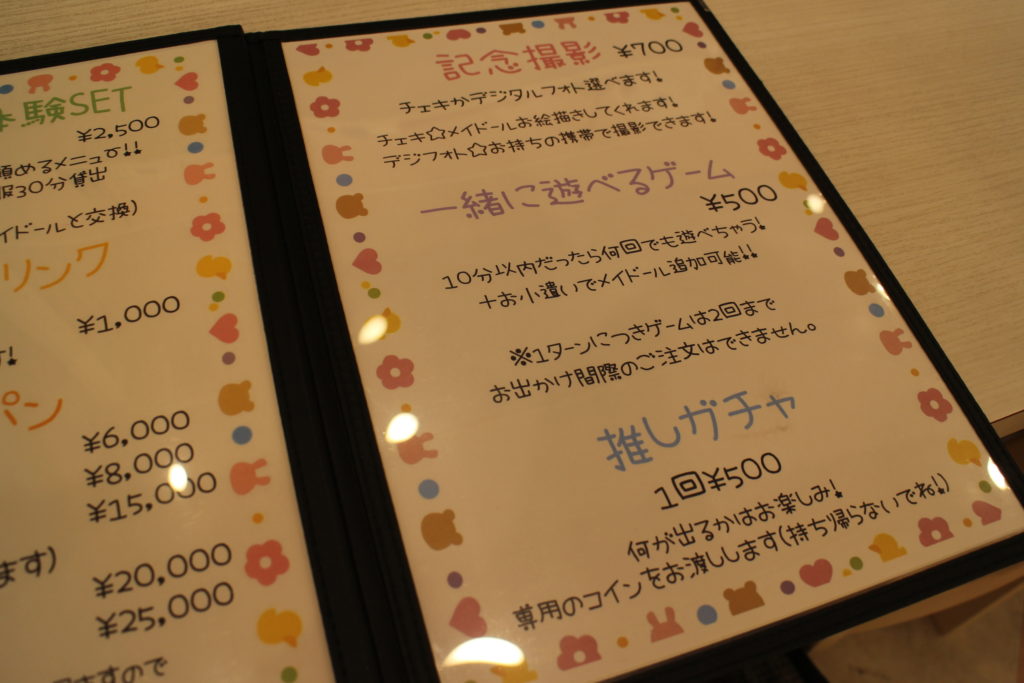 験SET
¥2,500
頼めるメニュー!!
服30分貸出
イドールと交換)
リンク
¥1,000
パン
¥6,000
¥8,000
¥15,000
ます)
¥20,000
¥25,000
ますので
記念撮影 ¥700
チェキかデジタルフォト選べます!
チェキ☆メイドールお絵描きしてくれます!
デジフォト☆お持ちの携帯で撮影できます!
一緒に遊べるゲーム
¥500
10分以内だったら何回でも遊べちゃう!
+お小遣いでメイドール追加可能!!
※1ターンにつきゲームは2回まで
お出かけ間際のご注文はできません。
推しガチャ
1回¥500
何が出るかはお楽しみ!
専用のコインをお渡しします(持ち帰らないでね!)